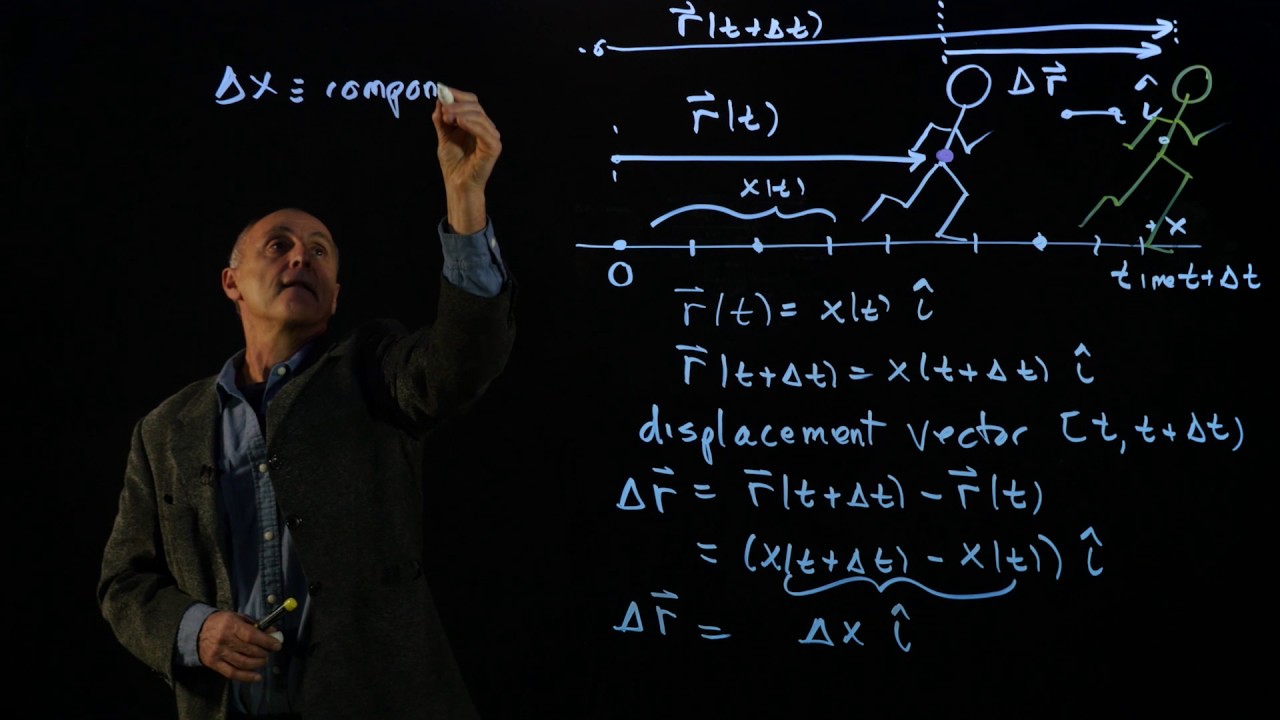 Δx ≡ compon
r⃗(t+Δt)
Δr⃗
î
r⃗(t)
x(t)
+x
0
time t+Δt
r⃗(t) = x(t) î
r⃗(t+Δt) = x(t+Δt) î
displacement vector [t, t+Δt)
Δr⃗ = r⃗(t+Δt) - r⃗(t)
= (x(t+Δt) - x(t)) î
Δr⃗ = Δx î